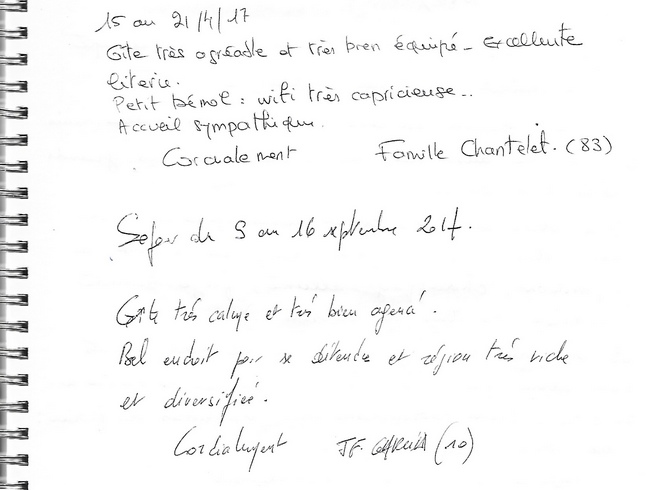 15 au 21/4/17
Gîte très agréable et très bien équipé - excellente
literie.
Petit bémol : wifi très capricieuse...
Accueil sympathique.
Cordialement Famille Chantelet. (83)
Séjour du 9 au 16 septembre 2017.
Gîte très calme et très bien agencé.
Bel endroit pour se détendre et région très riche
et diversifiée.
Cordialement JF. GARCIA (10)